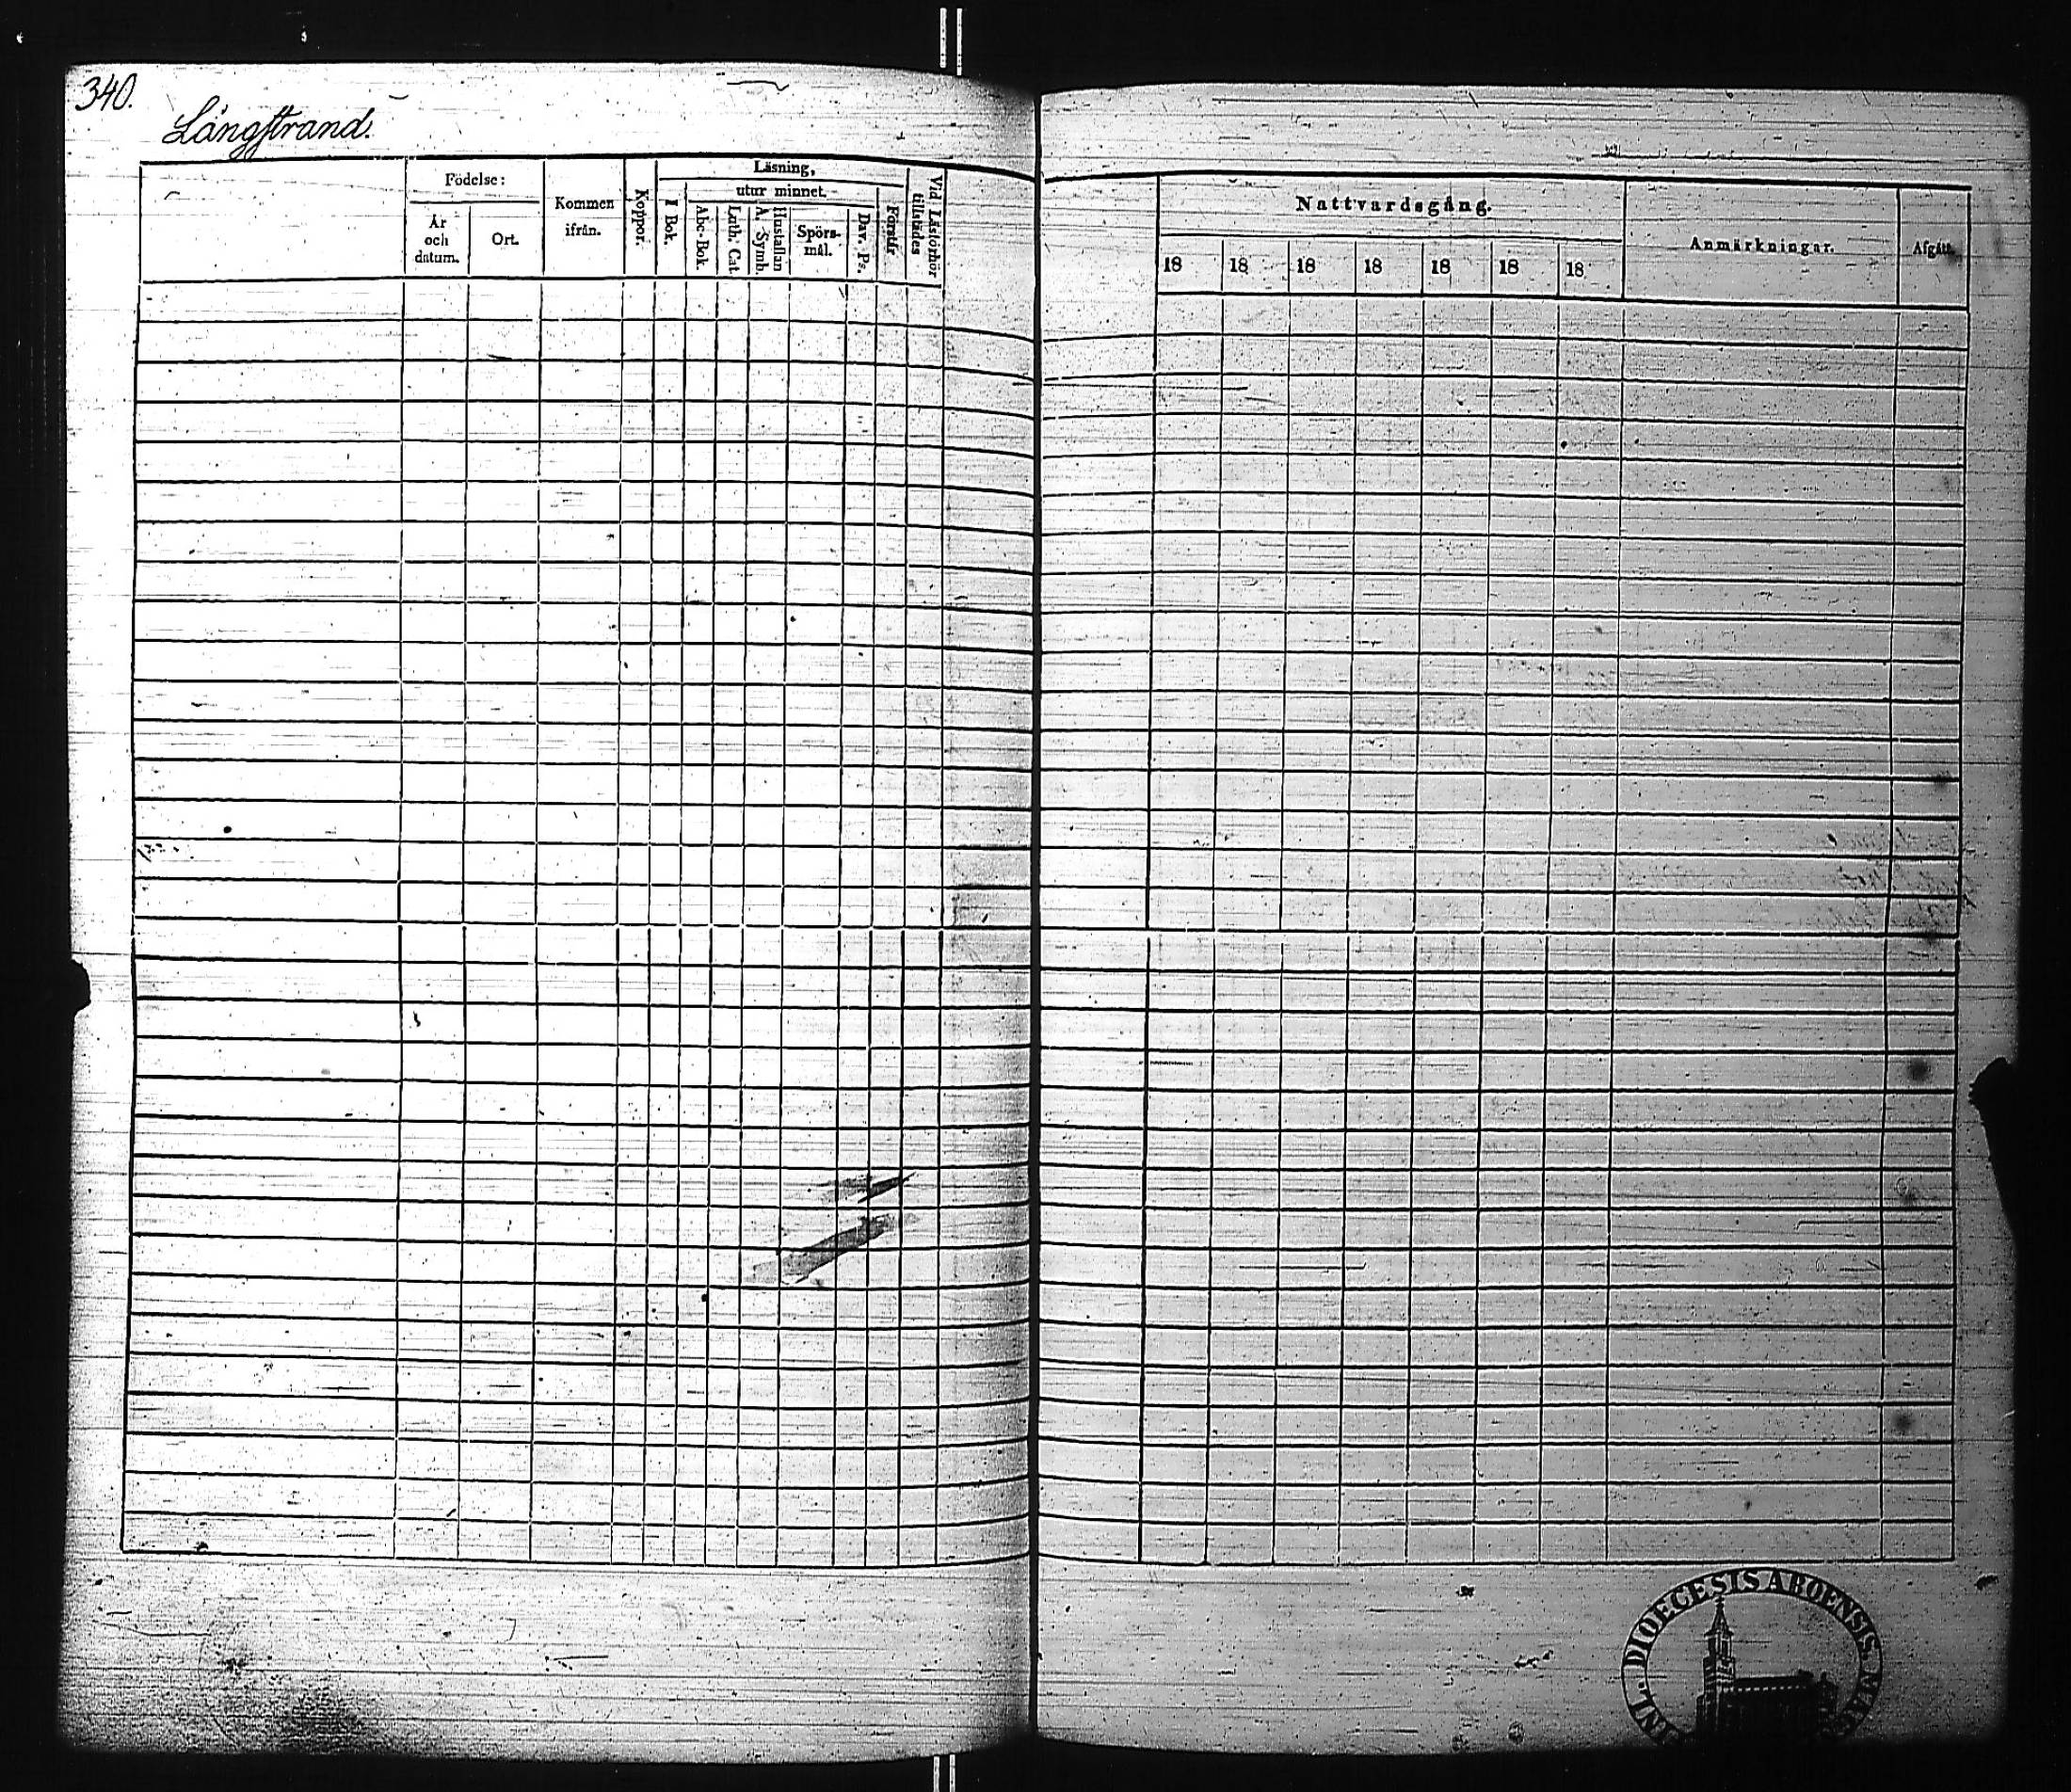 340.
Långstrand.
Födelse:
År
och
datum.
Ort.
Kommen
ifrån.
Koppor.
Läsning,
utur minnet.
I Bok.
Abc-Bok.
Luth. Cat.
Hustaflan
A. Symb.
Spörs-
mål.
Dav. Ps.
Förstår
Vid Läsförhör
tillstädes
Nattvardsgång.
18 18 18 18 18 18 18
Anmärkningar.
Afgått.
DIOECESIS ABOENSIS.